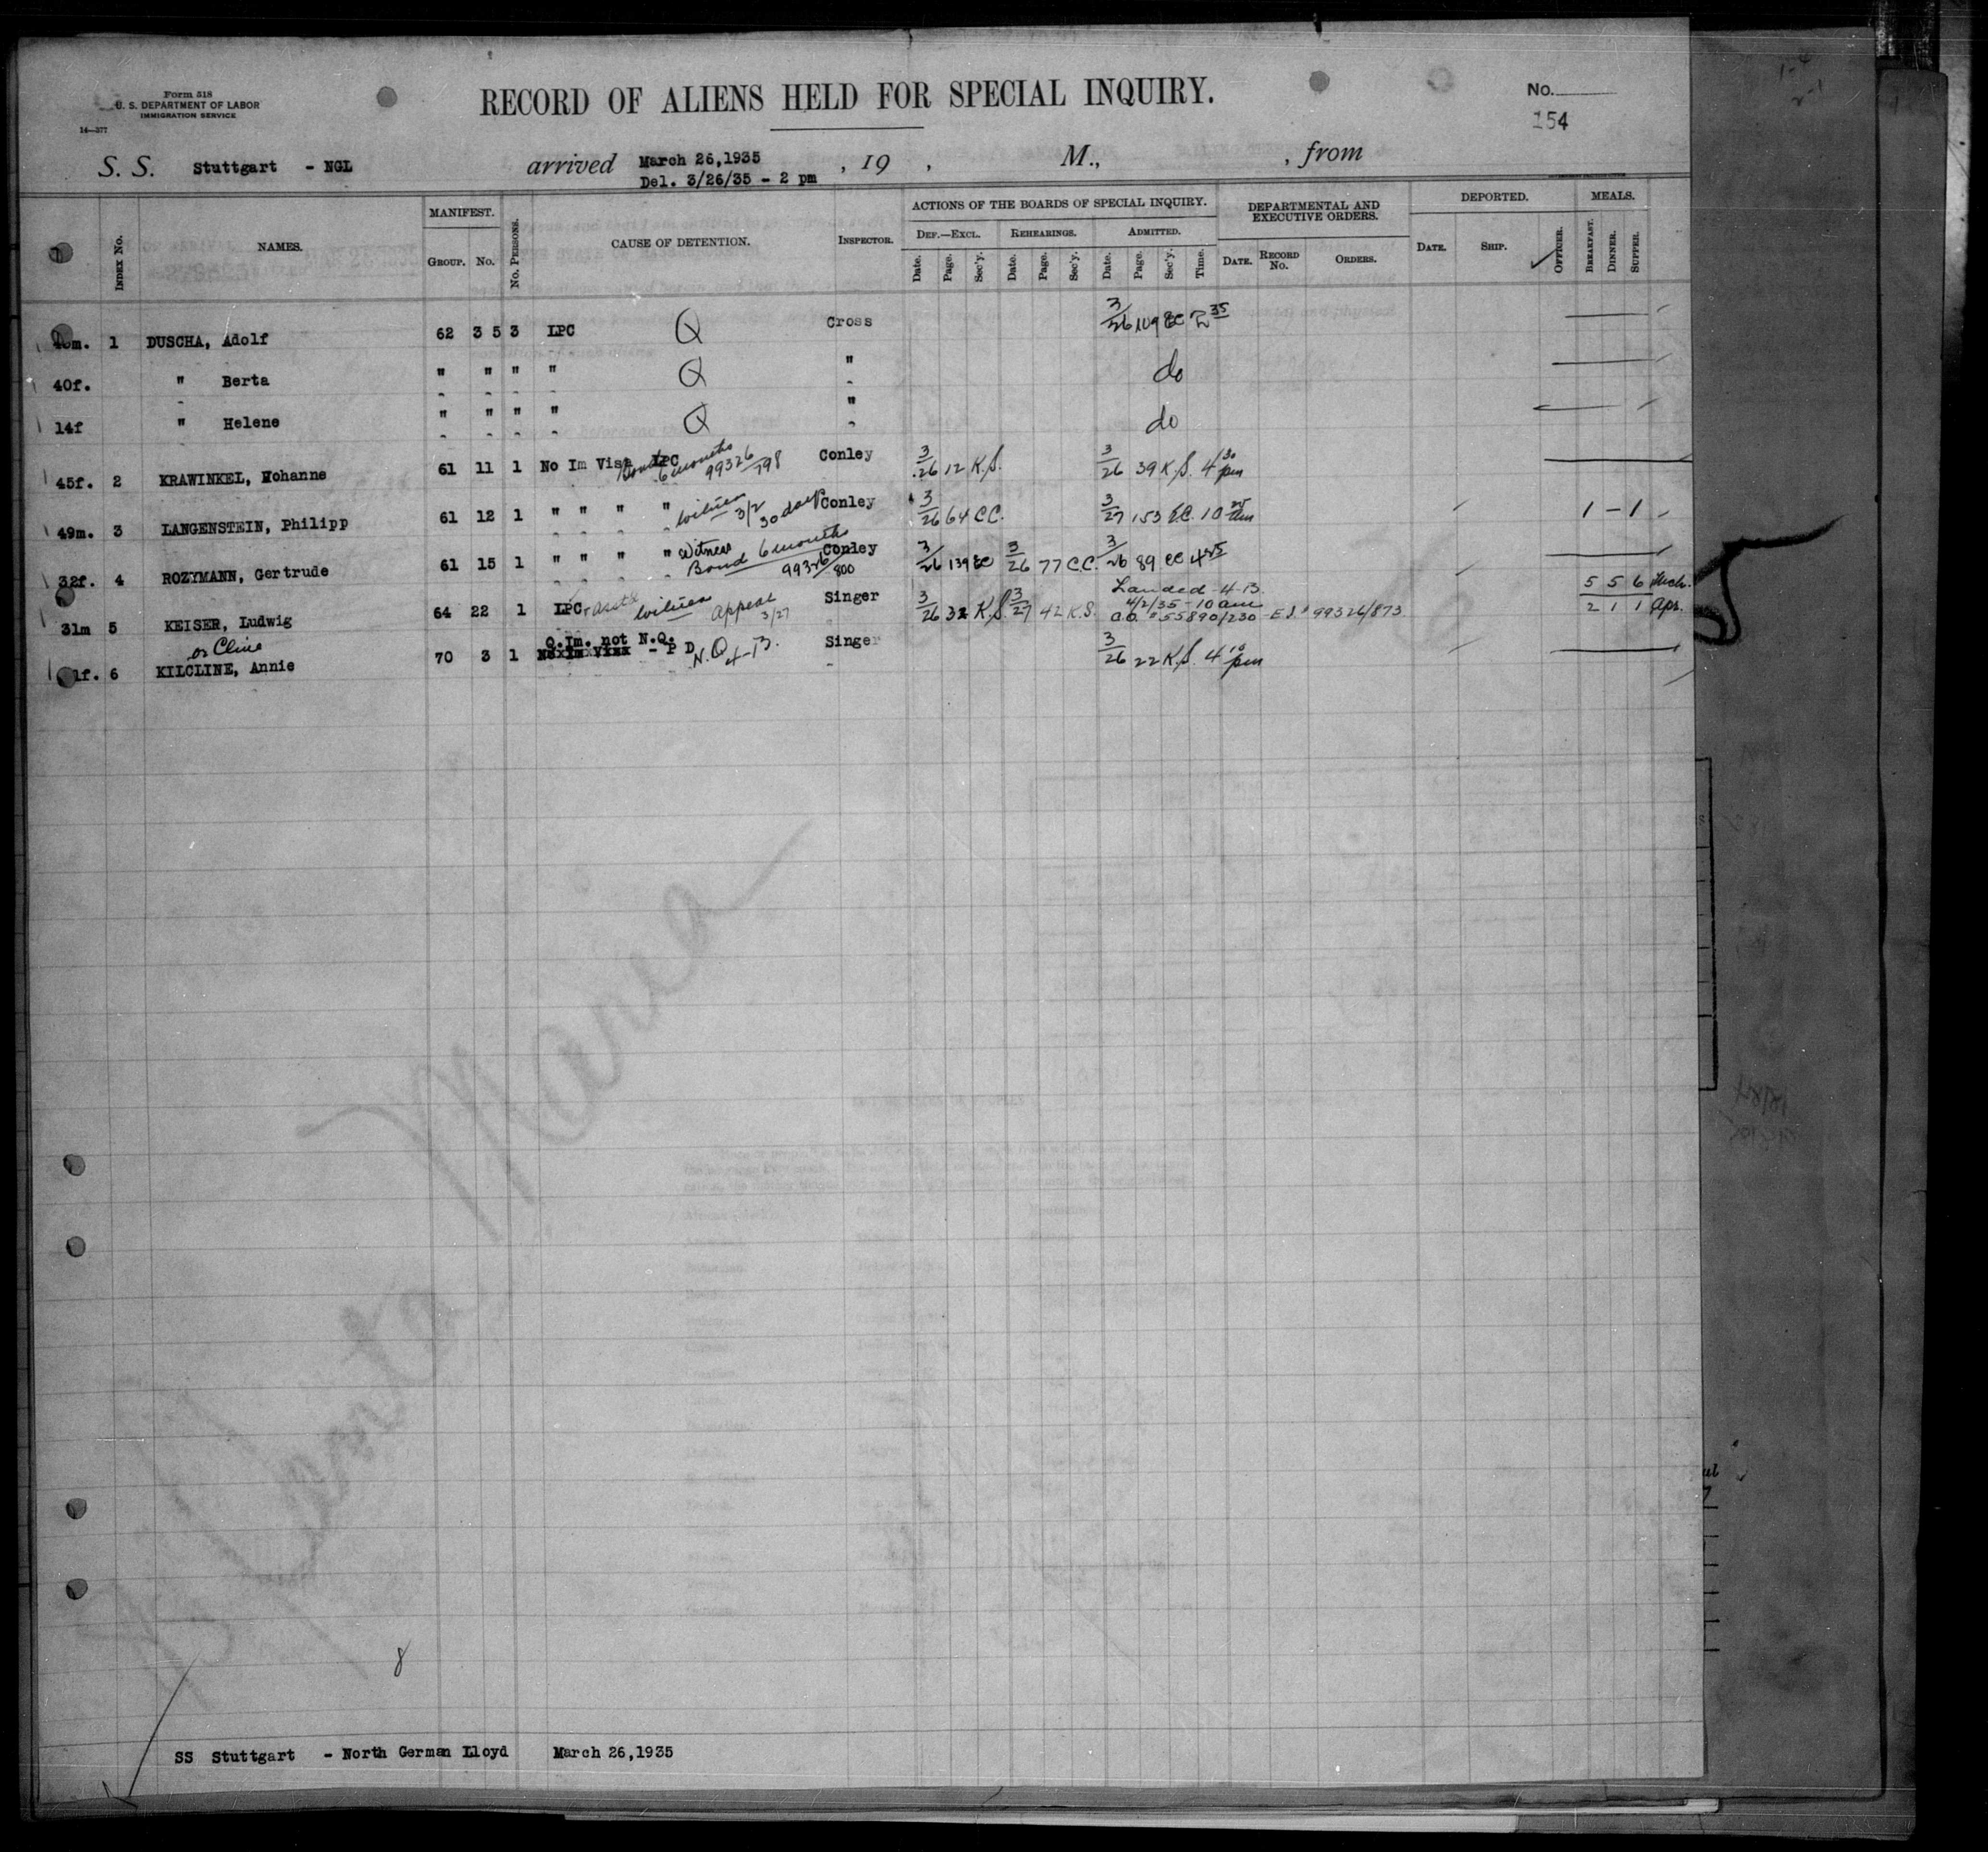 Form 518
U. S. DEPARTMENT OF LABOR
IMMIGRATION SERVICE
14—377
RECORD OF ALIENS HELD FOR SPECIAL INQUIRY.
No.
154
S. S. Stuttgart - NGL arrived March 26,1935 , 19 , M., , from
Del. 3/26/35 - 2 pm
INDEX No. NAMES. MANIFEST. GROUP. No. No. PERSONS. CAUSE OF DETENTION. INSPECTOR. ACTIONS OF THE BOARDS OF SPECIAL INQUIRY. DEPARTMENTAL AND EXECUTIVE ORDERS. DEPORTED. MEALS.
DEF.—EXCL. REHEARINGS. ADMITTED.
Date. Page. Sec'y. Date. Page. Sec'y. Date. Page. Sec'y. Time. DATE. RECORD No. ORDERS. DATE. SHIP. OFFICER. BREAKFAST. DINNER. SUPPER.
m. 1 DUSCHA, Adolf 62 3 5 3 LPC Q Cross 3/26 109 EC 2 35
40f. " Berta " " " " Q " do
14f " Helene " " " " Q " do
45f. 2 KRAWINKEL, Hohanne 61 11 1 No Im Visa LPC Bond 6 months 99326/798 Conley 3/26 12 K.S. 3/26 39 K.S. 4 30 pm
49m. 3 LANGENSTEIN, Philipp 61 12 1 " " " " witness 3/2 30 days Conley 3/26 64 C.C. 3/27 153 E.C. 10 am 1 - 1
32f. 4 ROZYMANN, Gertrude 61 15 1 " " " " Witness Bond 6 months 99326/800 Conley 3/26 139 EC 3/26 77 C.C. 3/26 89 CC 4 45
31m 5 KEISER, Ludwig 64 22 1 LPC witness appeal 3/27 Singer 3/26 32 K.S. 3/27 42 K.S. Landed 4-B 5 5 6 Mch.
4/2/35 - 10 am 2 1 1 Apr.
a.o. # 55890/230 - E.I. # 99326/873
or Cline
1f. 6 KILCLINE, Annie 70 3 1 Q.Im. not N.Q. - P D N.Q 4-B. Singer 3/26 22 K.S. 4 10 pm
Santa Maria
8
SS Stuttgart - North German Lloyd March 26,1935